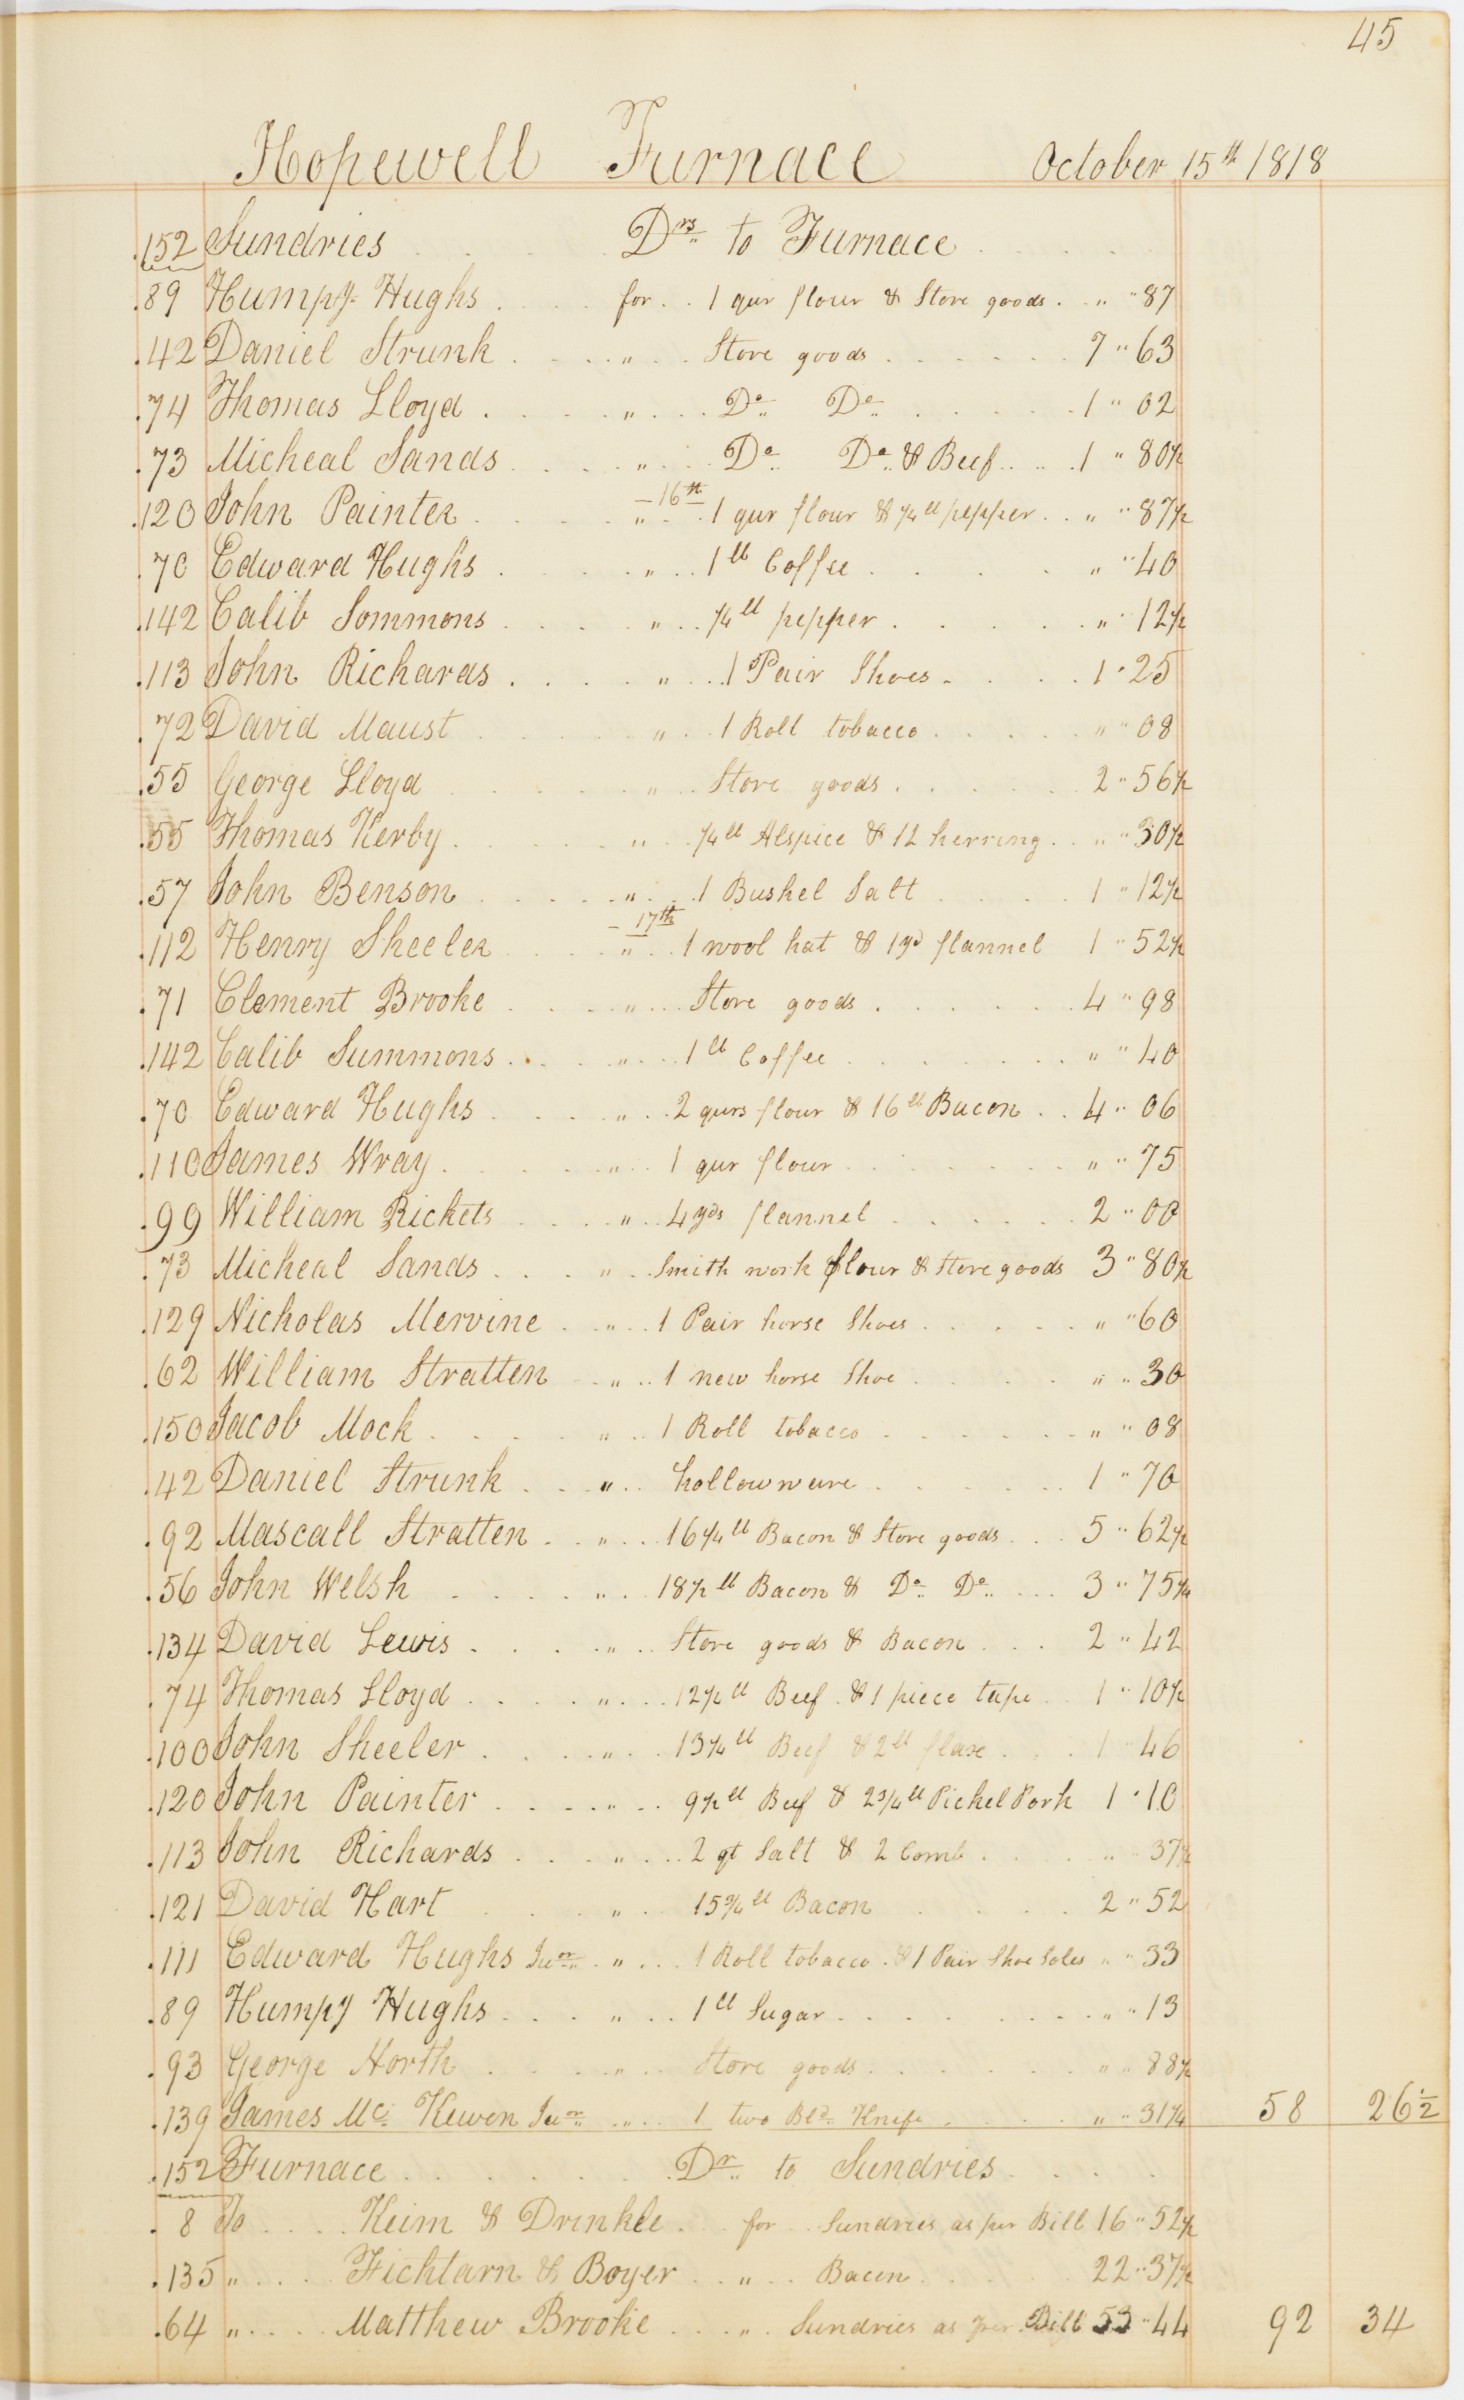 45
Hopewell Furnace October 15th 1818
152 Sundries Drs to Furnace
89 Humpy Hughs for 1 qur flour & Store goods " " 87
42 Daniel Strunk " Store goods 7 " 63
74 Thomas Lloyd " Do Do 1 " 02
73 Micheal Sands " Do Do & Beef 1 " 80½
16th
120 John Painter " 1 qur flour & ¼ lb pepper " " 87½
70 Edward Hughs " 1 lb Coffee " " 40
142 Calib Sommons " ¼ lb pepper " " 12½
113 John Richards " 1 Pair Shoes 1 " 25
72 David Maust " 1 Roll tobacco " " 08
55 George Lloyd " Store goods 2 " 56½
55 Thomas Kerby " ¼ lb Alspice & 12 herring " " 30½
57 John Benson " 1 Bushel Salt 1 " 12½
17th
112 Henry Sheeler " 1 wool hat & 1 yd flannel 1 " 52½
71 Clement Brooke " Store goods 4 " 98
142 Calib Summons " 1 lb Coffee " " 40
70 Edward Hughs " 2 qurs flour & 16 lb Bacon 4 " 06
110 James Wray " 1 qur flour " " 75
99 William Rickets " 4 yds flannel 2 " 00
73 Micheal Sands " Smith work flour & Store goods 3 " 80½
129 Nicholas Mervine " 1 Pair horse Shoes " " 60
62 William Stratten " 1 new horse Shoe " " 30
150 Jacob Mock " 1 Roll tobacco " " 08
42 Daniel Strunk " hollowware 1 " 70
92 Mascall Stratten " 16¼ lb Bacon & Store goods 5 " 62½
56 John Welsh " 18½ lb Bacon & Do Do 3 " 75¼
134 David Lewis " Store goods & Bacon 2 " 42
74 Thomas Lloyd " 12½ lb Beef & 1 piece tape 1 " 10½
100 John Sheeler " 13¼ lb Beef & 2 lb flax 1 " 46
120 John Painter " 9½ lb Beef & 2¾ lb Pickel Pork 1 " 10
113 John Richards " 2 qt Salt & 2 Comb " " 37½
121 David Hart " 15¾ lb Bacon 2 " 52
111 Edward Hughs Junr " 1 Roll tobacco & 1 Pair Shoe Soles " " 33
89 Humpy Hughs " 1 lb Sugar " " 13
93 George North " Store goods " " 88½
139 James Mc Kewen Junr " 1 two Bld Knife " " 31¼ 58 26½
152 Furnace Dr to Sundries
8 To Keim & Drinkle for Sundries as per Bill 16 " 52½
135 " Fichtarn & Boyer " Bacon 22 " 37½
64 " Matthew Brooke " Sundries as per Bill 53 " 44 92 34